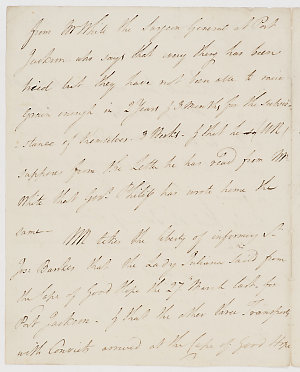 from Mr White the Surgeon General at Port
Jackson who says that every thing has been
tried but they have not been able to raise
Grain enough in 2 Years & 3 Months for the Subsis-
stance of themselves 3 Weeks. & that he
supposes from the Letter he has read from Mr
White that Govr Philip has wrote home the
same. MR takes the liberty of informing Sr
Jos: Banks that the Lady Juliana Said from
the Cape of Good Hope the 27 March last for
Port Jackson. & that the other three Transports
with Convicts arrived at the Cape of Good Hope